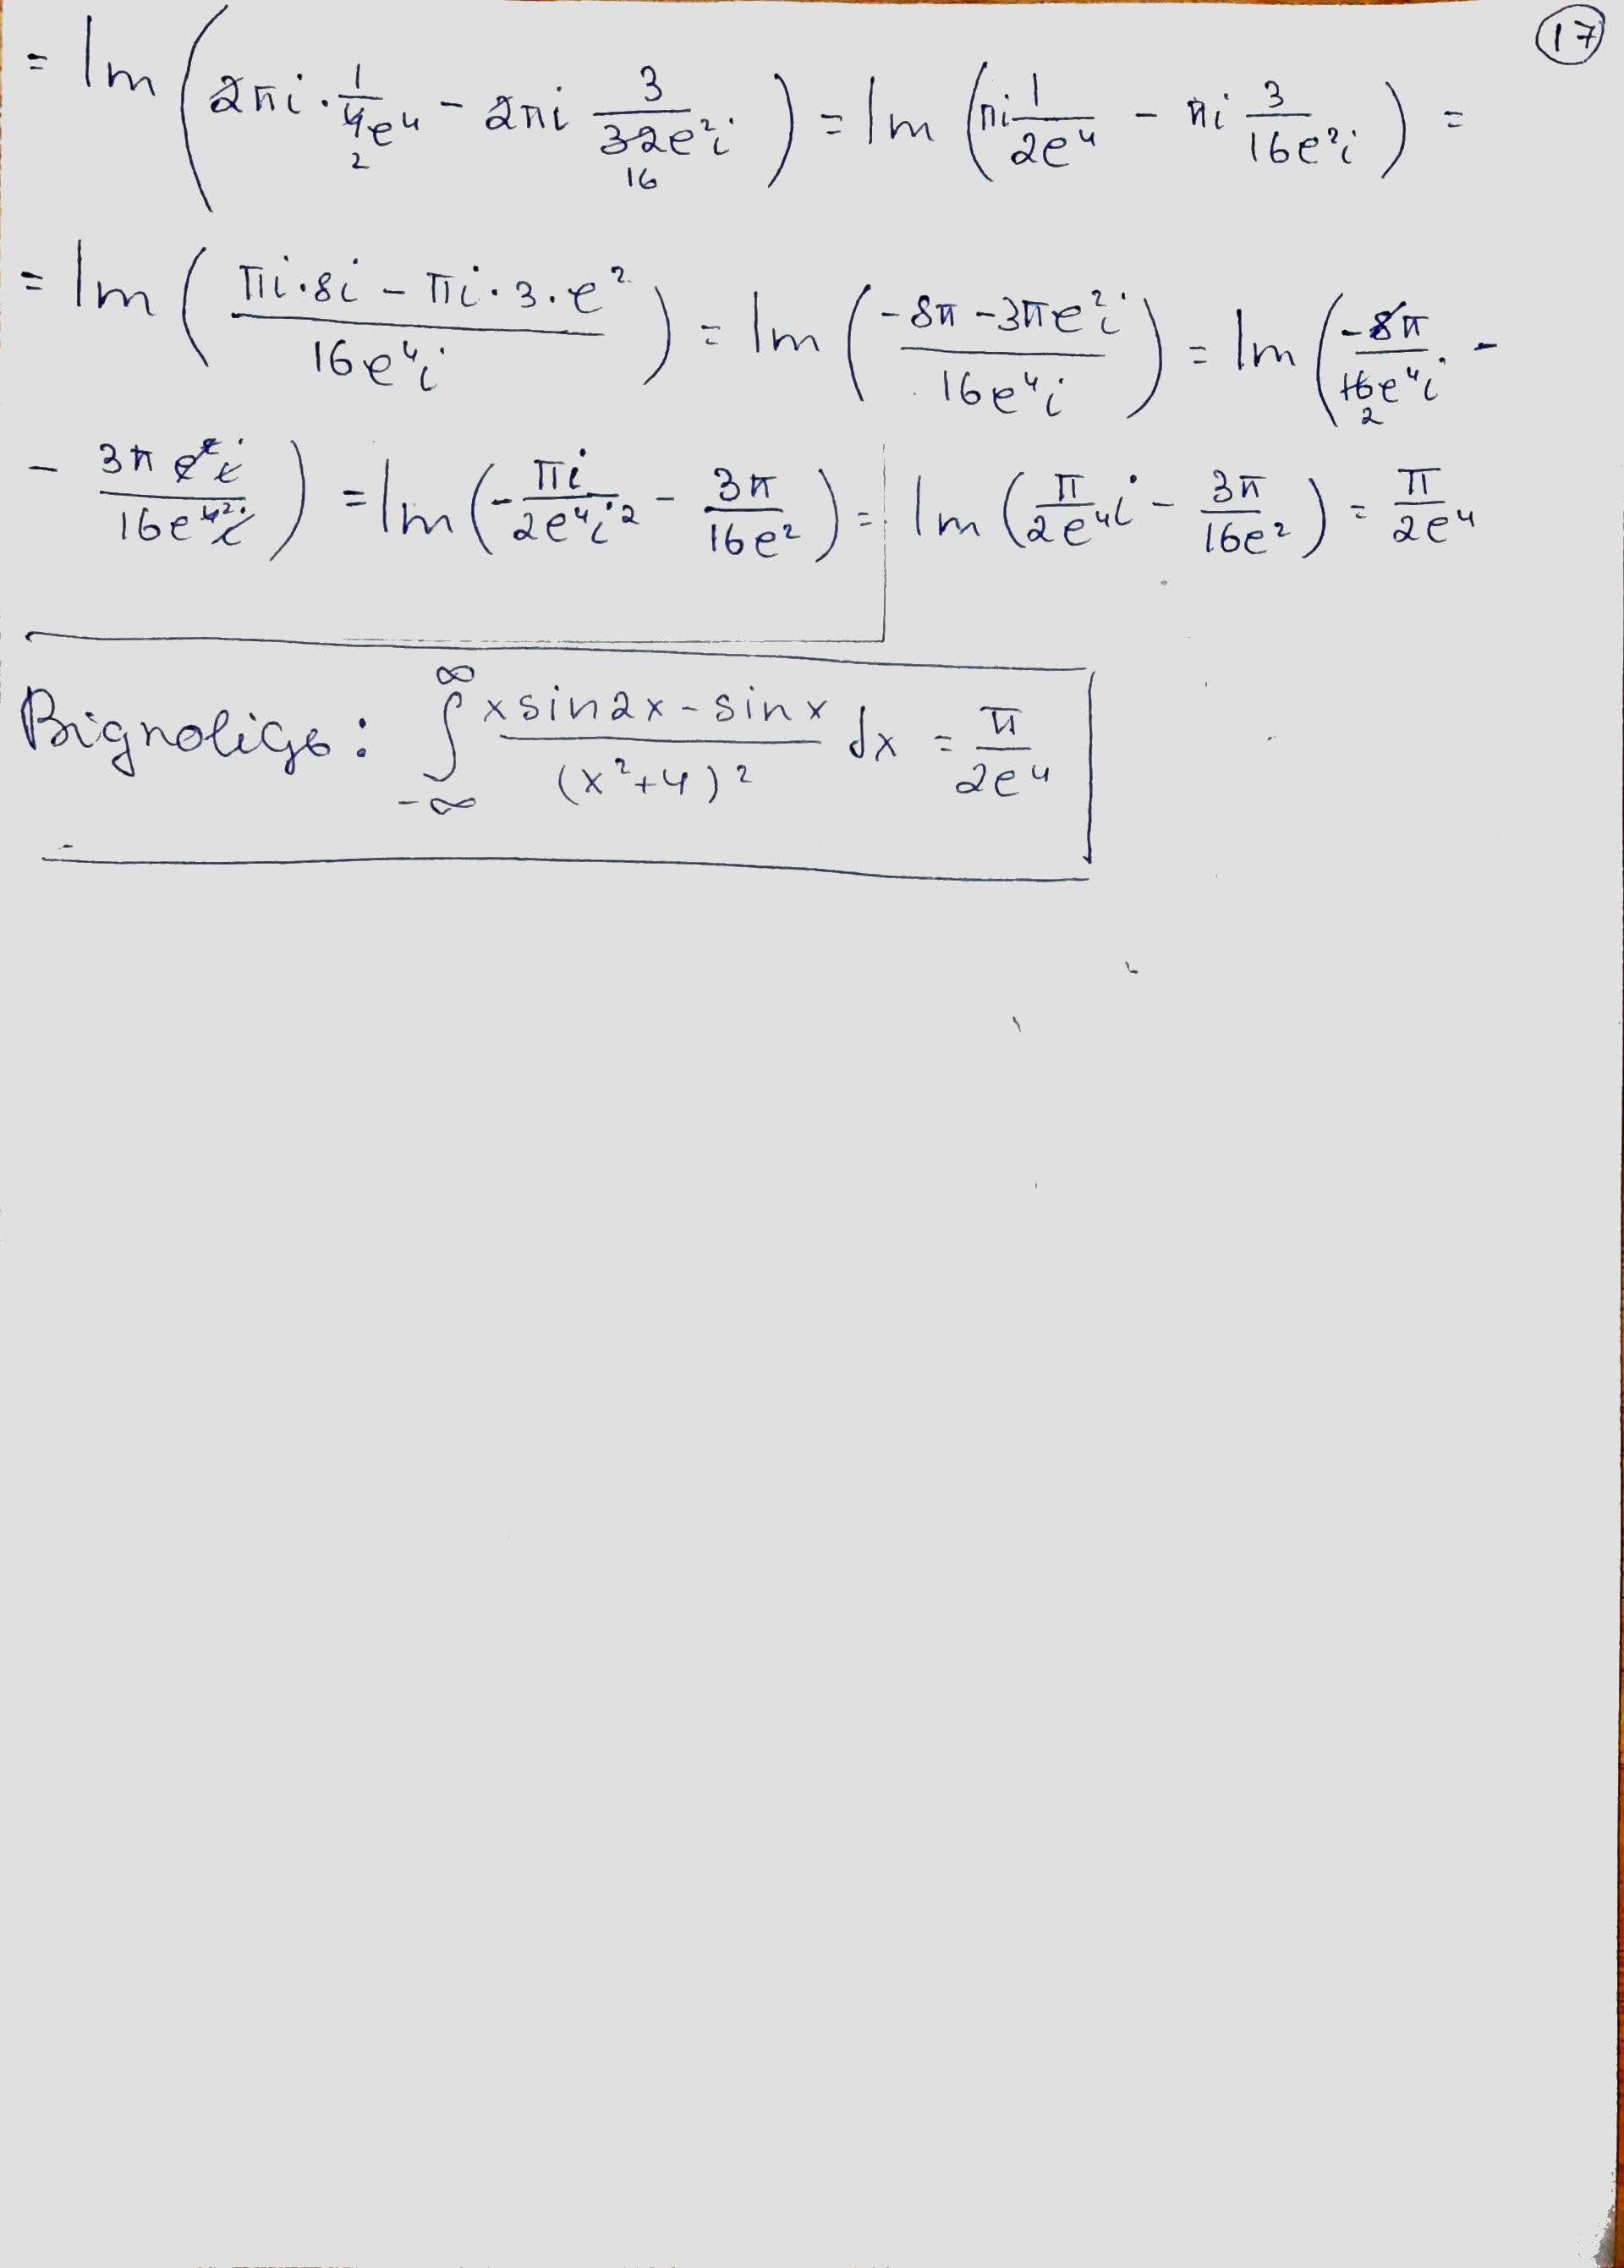 17
= Im (2πi · 1/4e⁴ - 2πi 3/32e²i) = Im (πi 1/2e⁴ - πi 3/16e²i) =
2 16
= Im (πi·8i - πi·3·e² / 16e⁴i) = Im (-8π - 3πe²i / 16e⁴i) = Im (-8π/16e⁴i -
2
- 3πe²i/16e⁴²i) = Im (-πi/2e⁴i² - 3π/16e²) = Im (π/2e⁴ i - 3π/16e²) = π/2e⁴
Відповідь: ∫_{-∞}^{∞} x sin2x - sinx / (x²+4)² dx = π/2e⁴